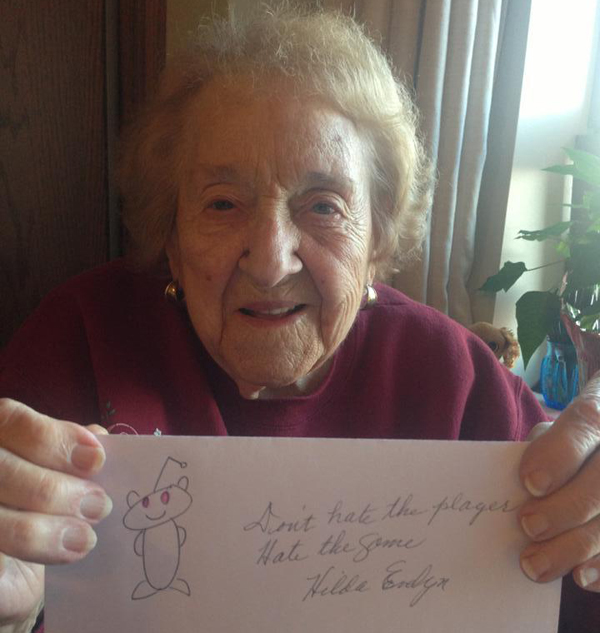 Don't hate the player
Hate the Game
Hilda